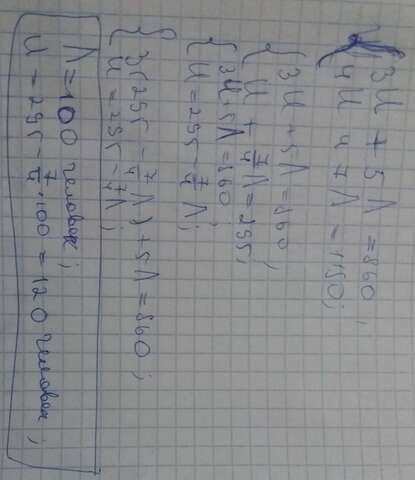 { 3И + 5Л = 860;
4И + 7Л = 1180;
{ 3И + 5Л = 860;
И + 7/4 Л = 295;
{ 3И + 5Л = 860;
И = 295 - 7/4 Л;
{ 3(295 - 7/4 Л) + 5Л = 860;
И = 295 - 7/4 Л;
Л = 100 человек;
И = 295 - 7/4 · 100 = 120 человек;